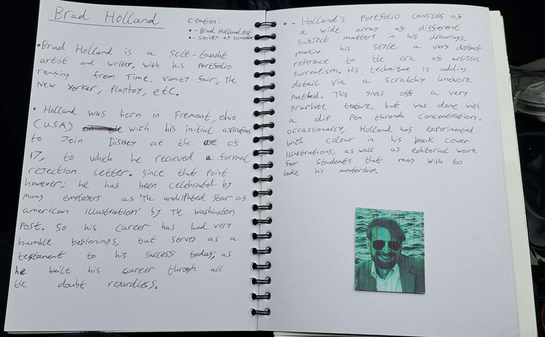 Brad Holland
Citation:
- Brad Holland
- Society of
• Brad Holland is a self-taught
artist and writer, with his portfolio
ranging from Time, Vanity fair, The
New Yorker, Playboy, etc.
• Holland was born in Fremont, Ohio
(USA) with his initial
to Join Disney at the age of
17, to which he recieved a formal
rejection letter. Since that point
however; he has been celebrated by
many employers as 'the undisputed star of
american illustration' by The Washington
Post. So his career has had very
humble beginnings, but serves as a
testament to his success today, as
he built his career through all
the doubt regardless.
- Holland's Portfolio consists of
a wide array of different
subject matters in his drawings,
making his style a very distinct
reference to the era of artistic
surrealism. His technique is adding
detail via a scratchy linework
method. This gives off a very
graphite texture, but was done with
a dip pen through concentration.
occasionally, Holland has experimented
with colour in his book cover
illustrations, as well as editorial work
for students that may wish to
take his mentorship.